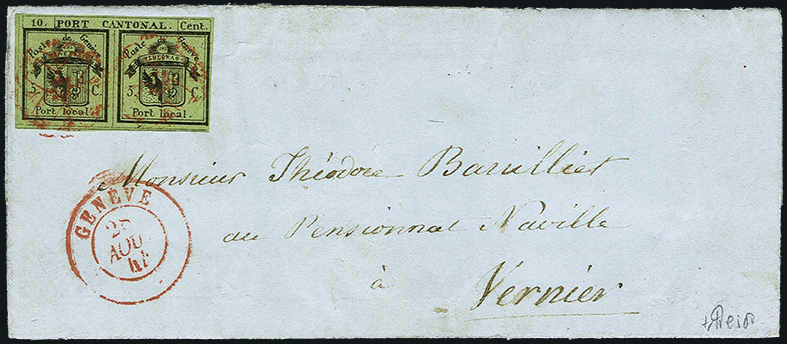 10. PORT CANTONAL. Cent.
Poste de Genève Poste de Genève
5 C 5 C
Port local. Port local.
Monsieur Théodore Baruillier
au Pensionnat Naville
à
Vernier
GENÈVE
AOU